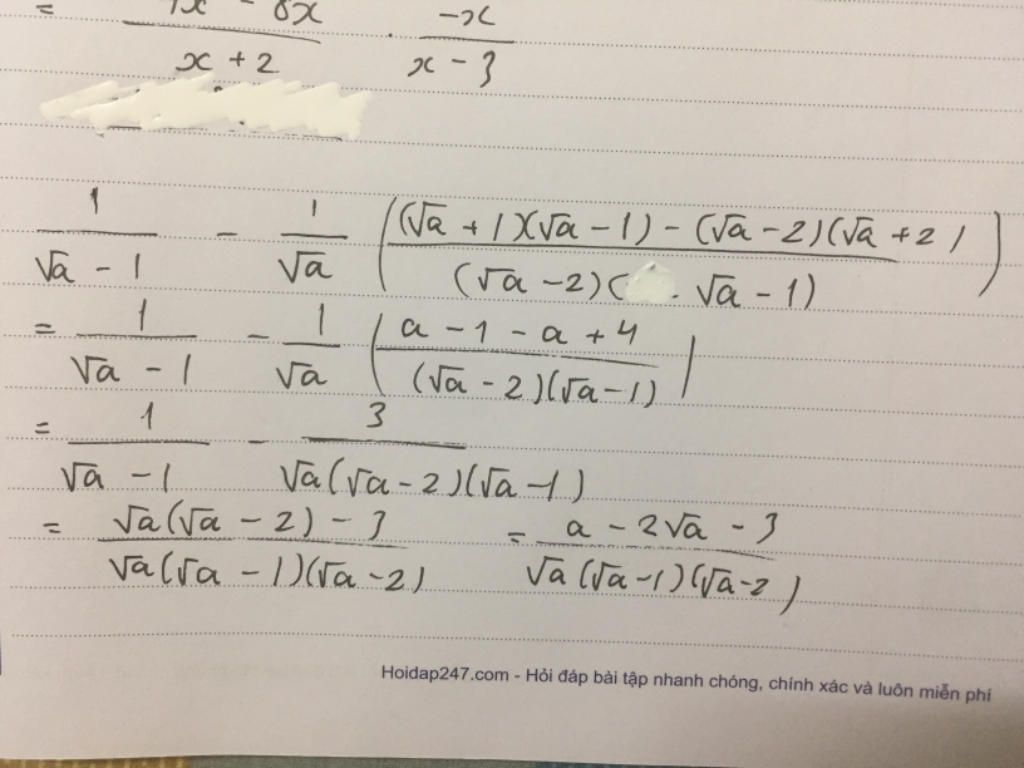 = / (x + 2) · (-x) / (x - 3)
1 / (√a - 1) - 1 / √a ( ((√a + 1)(√a - 1) - (√a - 2)(√a + 2)) / ((√a - 2)( · √a - 1)) )
= 1 / (√a - 1) - 1 / √a ( (a - 1 - a + 4) / ((√a - 2)(√a - 1)) )
= 1 / (√a - 1) - 3 / (√a(√a - 2)(√a - 1))
= (√a(√a - 2) - 3) / (√a(√a - 1)(√a - 2)) = (a - 2√a - 3) / (√a(√a - 1)(√a - 2))
Hoidap247.com - Hỏi đáp bài tập nhanh chóng, chính xác và luôn miễn phí